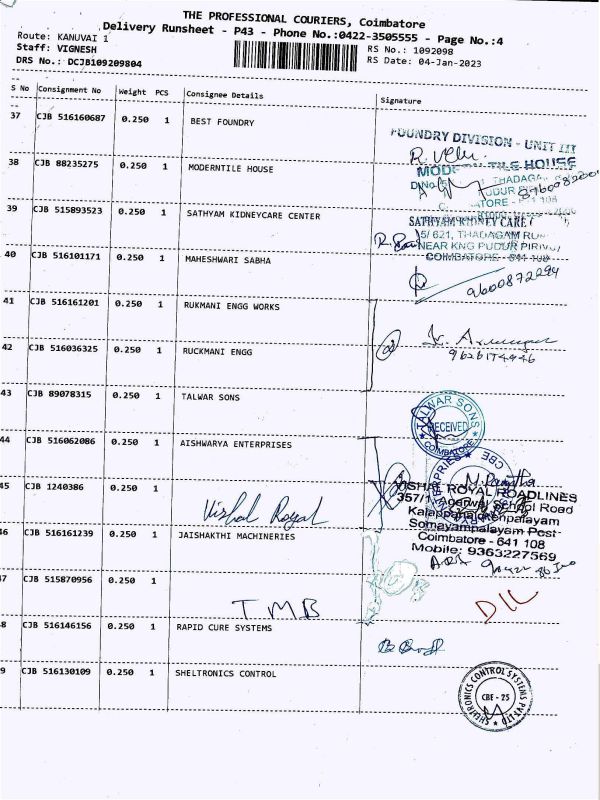 THE PROFESSIONAL COURIERS, Coimbatore
Delivery Runsheet - P43 - Phone No.:0422-3505555 - Page No.:4
Route: KANUVAI 1
Staff: VIGNESH
DRS No.: DCJB109209804
RS No.: 1092098
RS Date: 04-Jan-2023
S No Consignment No Weight PCS Consignee Details Signature
37 CJB 516160687 0.250 1 BEST FOUNDRY
FOUNDRY DIVISION - UNIT III
R. Velu.
38 CJB 88235275 0.250 1 MODERNTILE HOUSE
TILE HOUSE
39 CJB 515893523 0.250 1 SATHYAM KIDNEYCARE CENTER
SATHYAM KIDNEY CARE
5/ 621, THADAGAM
NEAR KNG PUDUR PIRIVU
COIMBATORE - 641 108
40 CJB 516101171 0.250 1 MAHESHWARI SABHA
9600872294
41 CJB 516161201 0.250 1 RUKMANI ENGG WORKS
42 CJB 516036325 0.250 1 RUCKMANI ENGG
9626174446
43 CJB 89078315 0.250 1 TALWAR SONS
TALWAR SONS
RECEIVED
COIMBATORE
44 CJB 516062086 0.250 1 AISHWARYA ENTERPRISES
CBE
45 CJB 1240386 0.250 1
Vishal Royal
VISHAL ROYAL ROADLINES
357/1, Agarwal School Road
Kalappanaickenpalayam
Somayampalayam Post
Coimbatore - 641 108
Mobile: 9363227569
46 CJB 516161239 0.250 1 JAISHAKTHI MACHINERIES
47 CJB 515870956 0.250 1
TMB
DIL
8 CJB 516146156 0.250 1 RAPID CURE SYSTEMS
9 CJB 516130109 0.250 1 SHELTRONICS CONTROL
SHELTRONICS CONTROL SYSTEMS PVT LTD
CBE - 25